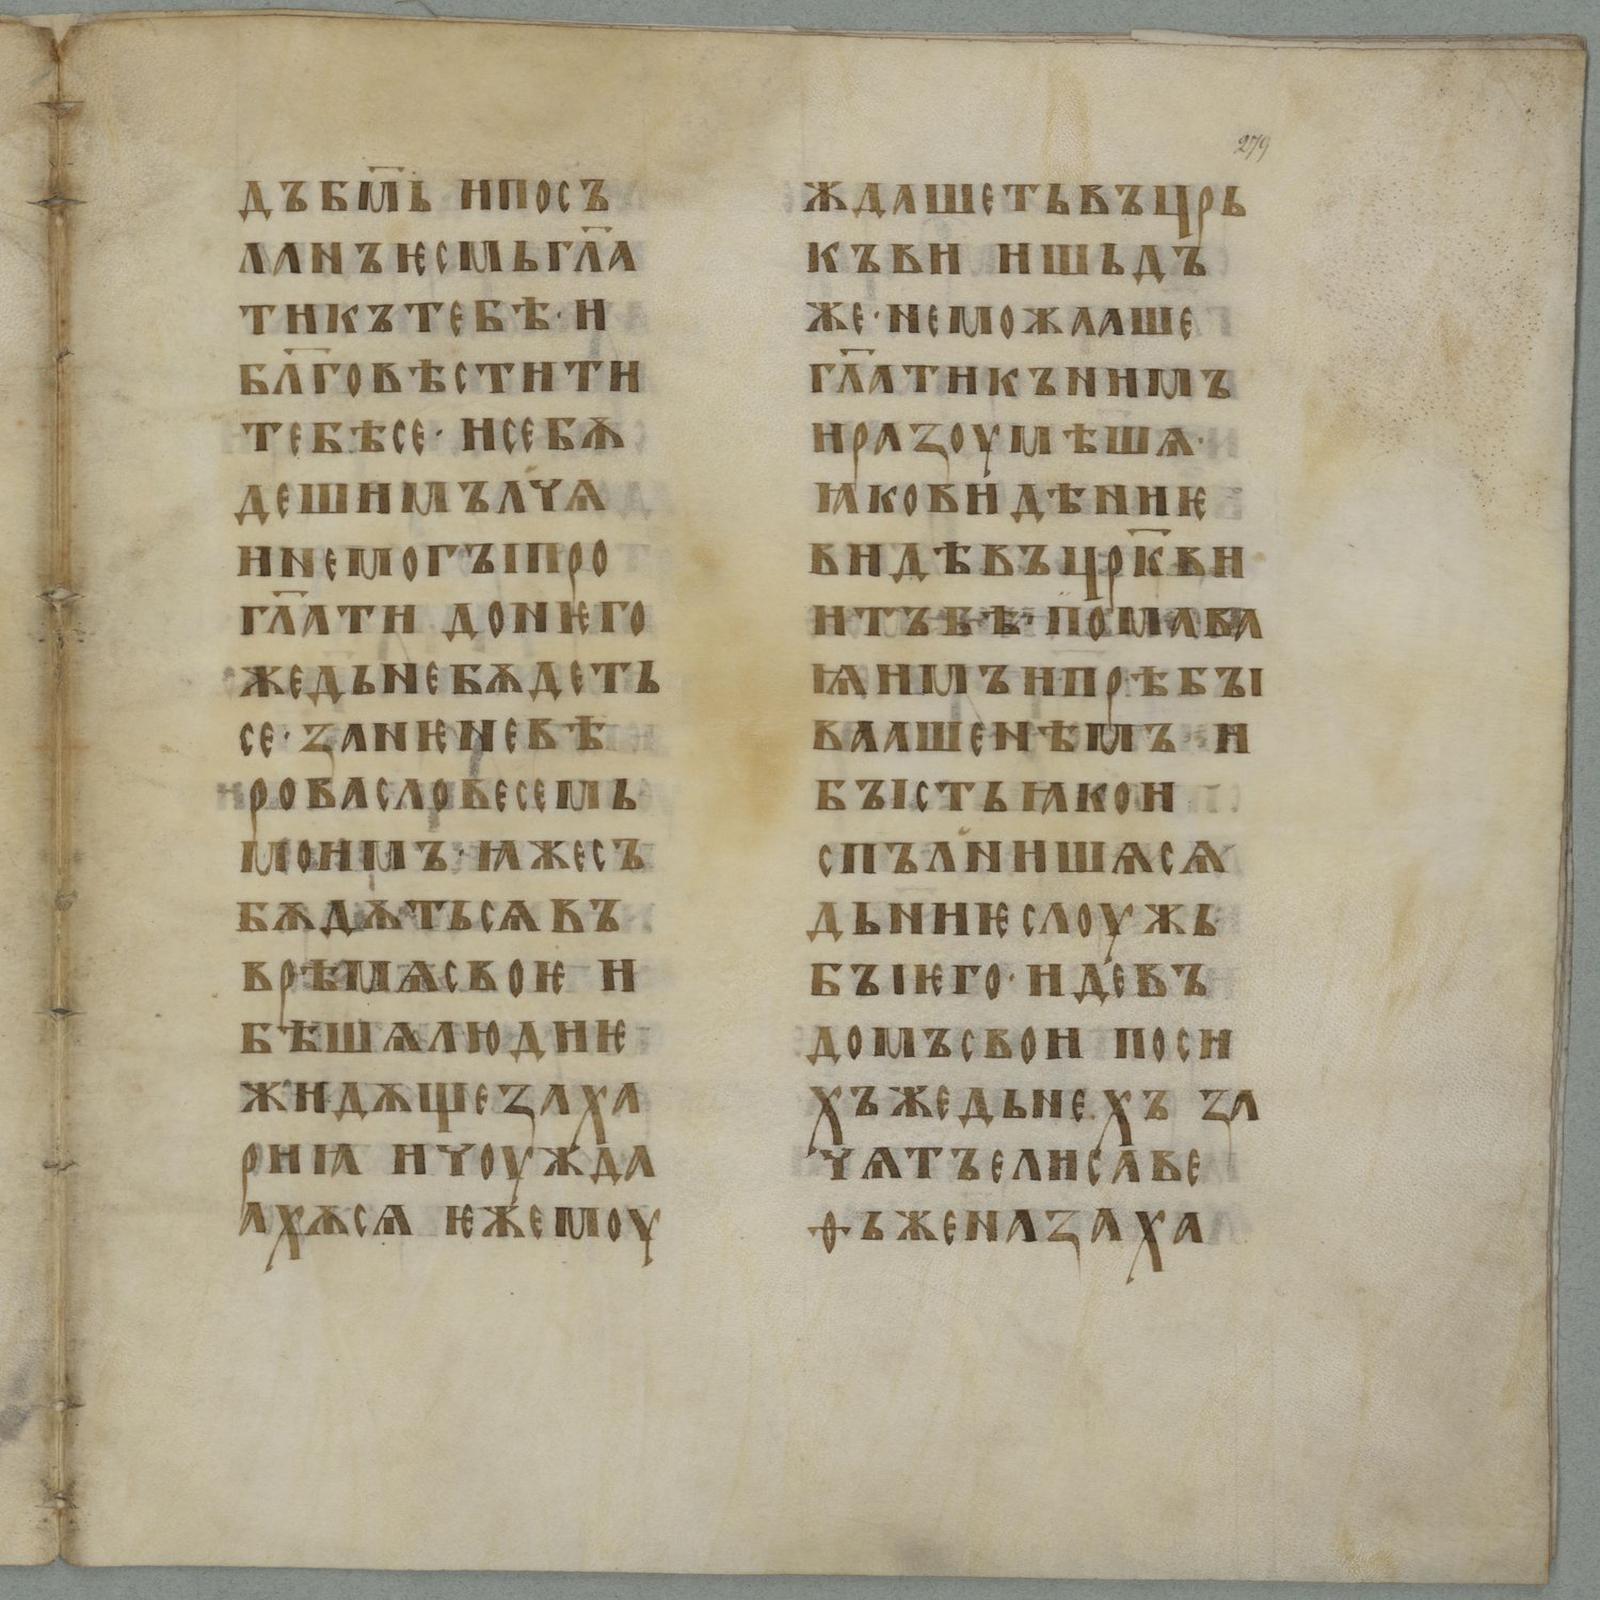 279
дъбм҃ь ипосъ
ланъѥсмьгл҃а
тикътебѣ· и
бл҃говѣстити
тебѣсе· исебѫ
дешимълчѧ
инемогꙑпро
гл҃ати донѥго
жедьнебѫдеть
се· занѥневѣ
ровасловесемь
моимъ· ꙗжесъ
бѫдѫтьсѧвъ
врѣмѧсвоѥ и
бѣшѧлюдиѥ
жидѫщезаха
риꙗ ичоужда
ахѫсѧ ѥжемоу
ждашетьвъцр҃ь
къви ишьдъ
же· неможааше
гл҃атикънимъ
иразоумѣшѧ·
ꙗковидѣниѥ
видѣвъцрк҃ви
итъбѣ· помава
ѩимъипрѣбꙑ
ваашенѣмъ и
бꙑстьꙗкои
спълнишѧсѧ
дьниѥслоужь
бꙑѥго· идевъ
домъсвои поси
хъжедьнехъ за
чѧтъелисаве
ѳьженазаха